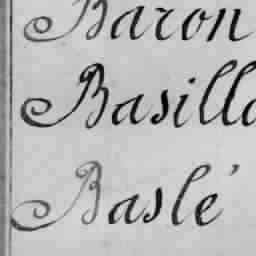 Baron
Basilla
Baslé